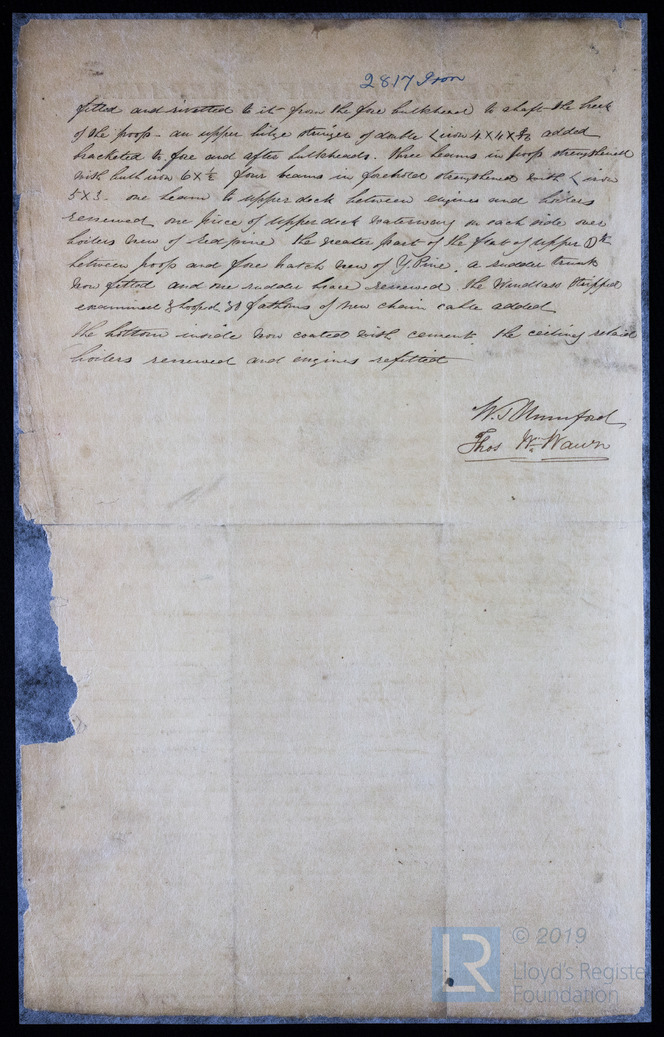 2817 Iron
fitted and rivetted to it from the fore bulkhead to abaft the break
of the poop - an upper bilge stringer of double < iron 4 x 4 x 8/16 added
bracketed to fore and after bulkheads. three beams in poop strengthened
with bulb iron 6 x ½ four beams in forehold strengthened with < iron
5 x 3 - one beam to upper deck between engines and boilers
renewed one piece of upper deck waterway on each side over
boilers new of red pine the greater part of the flat of upper Dk
between poop and fore hatch new of Y. Pine. a rudder trunk
now fitted and one rudder brace renewed the Windlass stripped
examined & hooped 30 fathoms of new chain cable added
the bottom inside now coated with cement. the ceiling relaid
boilers renewed and engines refitted
W. T. Mumford
Thos Wm Wawn
© 2019
LR
Lloyd's Registe
Foundation